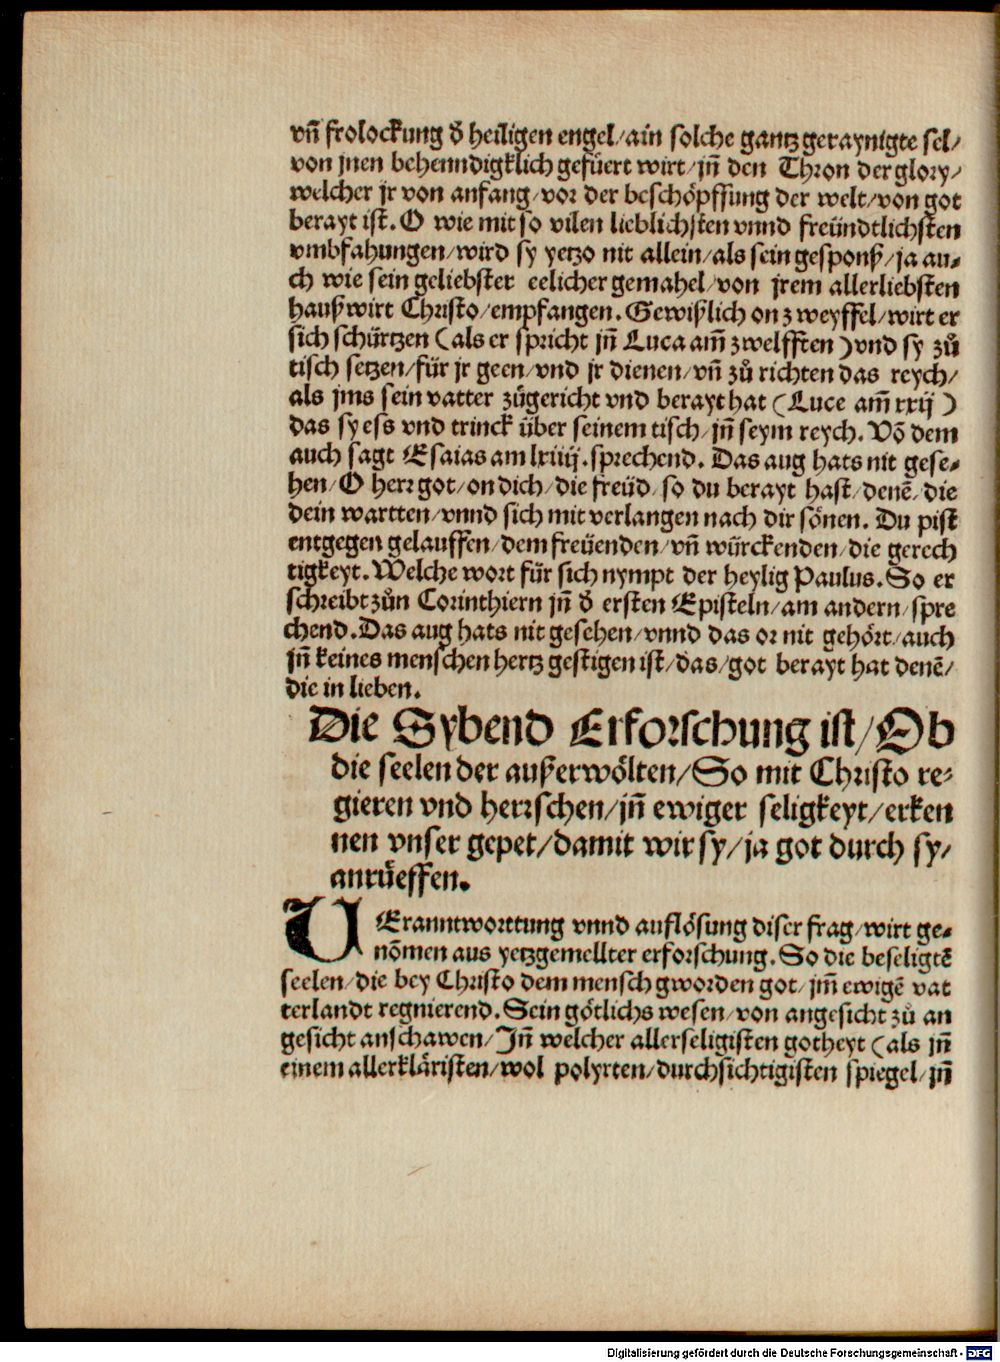 vñ frolockung d̕ heiligen engel/ain solche gantz geraynigte sel/
von jnen behenndigklich gefüert wirt/jñ den Thron der glory/
welcher jr von anfang/vor der beschöpffung der welt/von got
berayt ist. O wie mit so vilen lieblichsten vnnd freündtlichsten
vmbfahungen/wird sy yetzo nit allein/als sein gesponß/ja au⸗
ch wie sein geliebster eelicher gemahel/von jrem allerliebsten
haußwirt Christo/empfangen. Gewißlich on zweyffel/wirt er
sich schürtzen (als er spricht jñ Luca am̃ zwelfften) vnd sy zů
tisch setzen/für jr geen/vnd jr dienen/vñ zů richten das reych/
als jms sein vatter zůgericht vnd berayt hat (Luce am̃ xxij)
das sy ess vnd trinck über seinem tisch/jñ seym reych. Võ dem
auch sagt Esaias am lxiiij. sprechend. Das aug hats nit gese⸗
hen/O herr got/on dich/die freüd/so du berayt hast/denẽ/die
dein wartten/vnnd sich mit verlangen nach dir sönen. Du pist
entgegen gelauffen/dem freüenden/vñ würckenden/die gerech
tigkeyt. Welche wort für sich nympt der heylig Paulus. So er
schreibt zůn Corinthiern jñ d̕ ersten Episteln/am andern/spre
chend. Das aug hats nit gesehen/vnnd das or nit gehört/auch
jñ keines menschen hertz gestigen ist/das/got berayt hat denẽ/
die in lieben.
Die Sybend Erforschung ist/Ob
die seelen der außerwölten/So mit Christo re⸗
gieren vnd herrschen/jñ ewiger seligkeyt/erken
nen vnser gepet/damit wir sy/ja got durch sy/
anrüeffen.
VEranntworttung vnnd auflösung diser frag/wirt ge⸗
nõmen aus yetzgemellter erforschung. So die beseligtẽ
seelen/die bey Christo dem mensch gworden got/jm̃ ewigẽ vat
terlandt regnierend. Sein götlichs wesen/von angesicht zů an
gesicht anschawen/Jñ welcher allerseligisten gotheyt (als jñ
einem allerkläristen/wol polyrten/durchsichtigisten spiegel/jñ
Digitalisierung gefördert durch die Deutsche Forschungsgemeinschaft - DFG